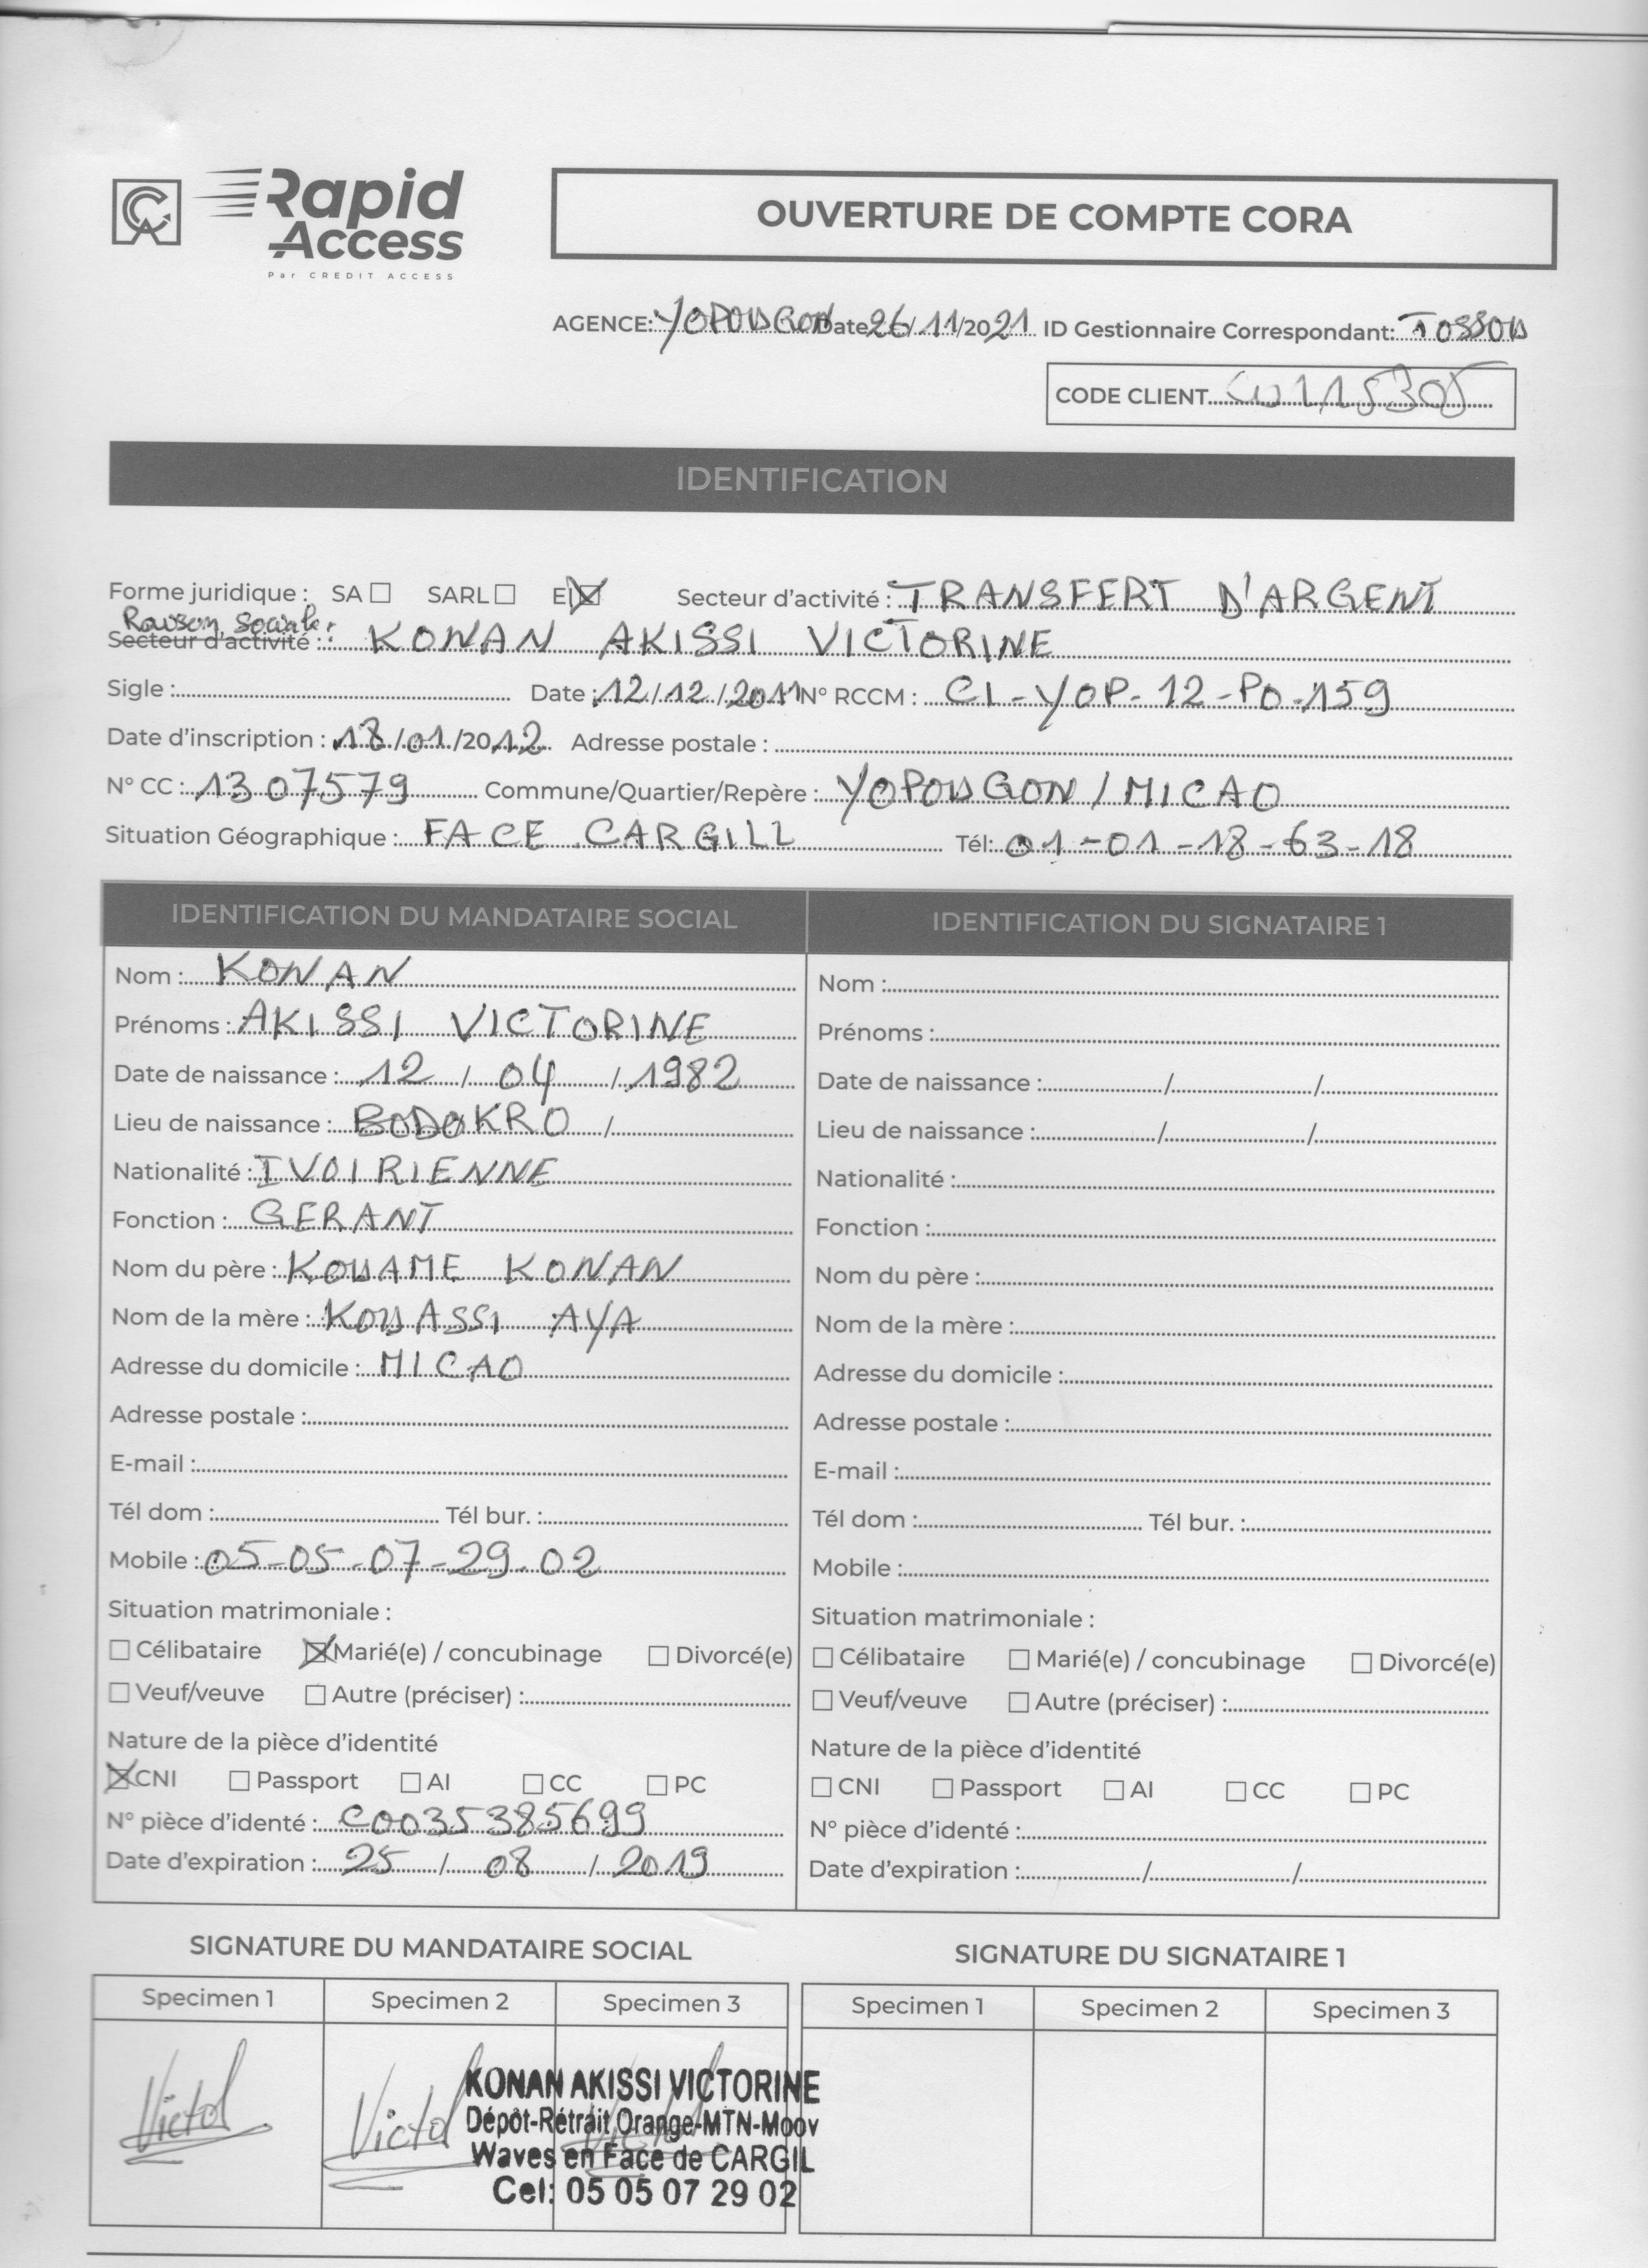 Rapid
Access
Par CREDIT ACCESS
OUVERTURE DE COMPTE CORA
AGENCE: YOPOUGON Date 26/11/2021 ID Gestionnaire Correspondant: TOSSOU
CODE CLIENT 115305
IDENTIFICATION
Forme juridique : SA ☐ SARL ☐ EI ☒ Secteur d'activité : TRANSFERT D'ARGENT
Raison Sociale :
Secteur d'activité : KONAN AKISSI VICTORINE
Sigle : Date : 12/12/2011 N° RCCM : CI-YOP-12-PO-159
Date d'inscription : 18/01/2012 Adresse postale :
N° CC : 1307579 Commune/Quartier/Repère : YOPOUGON / MICAO
Situation Géographique : FACE CARGILL Tél: 01-01-18-63-18
IDENTIFICATION DU MANDATAIRE SOCIAL
Nom : KONAN
Prénoms : AKISSI VICTORINE
Date de naissance : 12 / 04 / 1982
Lieu de naissance : BODOKRO /
Nationalité : IVOIRIENNE
Fonction : GERANT
Nom du père : KOUAME KONAN
Nom de la mère : KOUASSI AYA
Adresse du domicile : MICAO
Adresse postale :
E-mail :
Tél dom : Tél bur. :
Mobile : 05-05-07-29-02
Situation matrimoniale :
☐ Célibataire ☒ Marié(e) / concubinage ☐ Divorcé(e)
☐ Veuf/veuve ☐ Autre (préciser) :
Nature de la pièce d'identité
☒ CNI ☐ Passport ☐ AI ☐ CC ☐ PC
N° pièce d'identé : C0035385699
Date d'expiration : 25 / 08 / 2019
IDENTIFICATION DU SIGNATAIRE 1
Nom :
Prénoms :
Date de naissance : / /
Lieu de naissance : / /
Nationalité :
Fonction :
Nom du père :
Nom de la mère :
Adresse du domicile :
Adresse postale :
E-mail :
Tél dom : Tél bur. :
Mobile :
Situation matrimoniale :
☐ Célibataire ☐ Marié(e) / concubinage ☐ Divorcé(e)
☐ Veuf/veuve ☐ Autre (préciser) :
Nature de la pièce d'identité
☐ CNI ☐ Passport ☐ AI ☐ CC ☐ PC
N° pièce d'identé :
Date d'expiration : / /
SIGNATURE DU MANDATAIRE SOCIAL
Specimen 1 Specimen 2 Specimen 3
KONAN AKISSI VICTORINE
Dépôt-Rétrait Orange-MTN-Moov
Waves en Face de CARGIL
Cel: 05 05 07 29 02
SIGNATURE DU SIGNATAIRE 1
Specimen 1 Specimen 2 Specimen 3